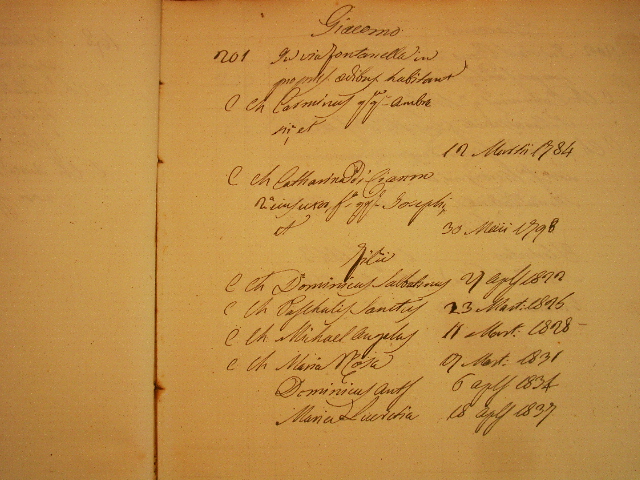 Giacomo
201 In via fontanella in
propriis ædibus habitant
C Ch Carminus qm Ambro
sii et
12 Martii 1784
C Ch Catharina Di
eius uxor fa qm Joseph
et 30 Maii 1798
Filii
C Ch Dominicus Sabbatinus 29 aplis 1822
C Ch Paschalis Sanctus 23 Mart. 1825
C Ch Michael Angelus 11 Mart. 1828
C Ch Maria Rosa 19 Mart. 1831
Dominicus Ants 6 aplis 1834
Maria Lucretia 18 aplis 1837